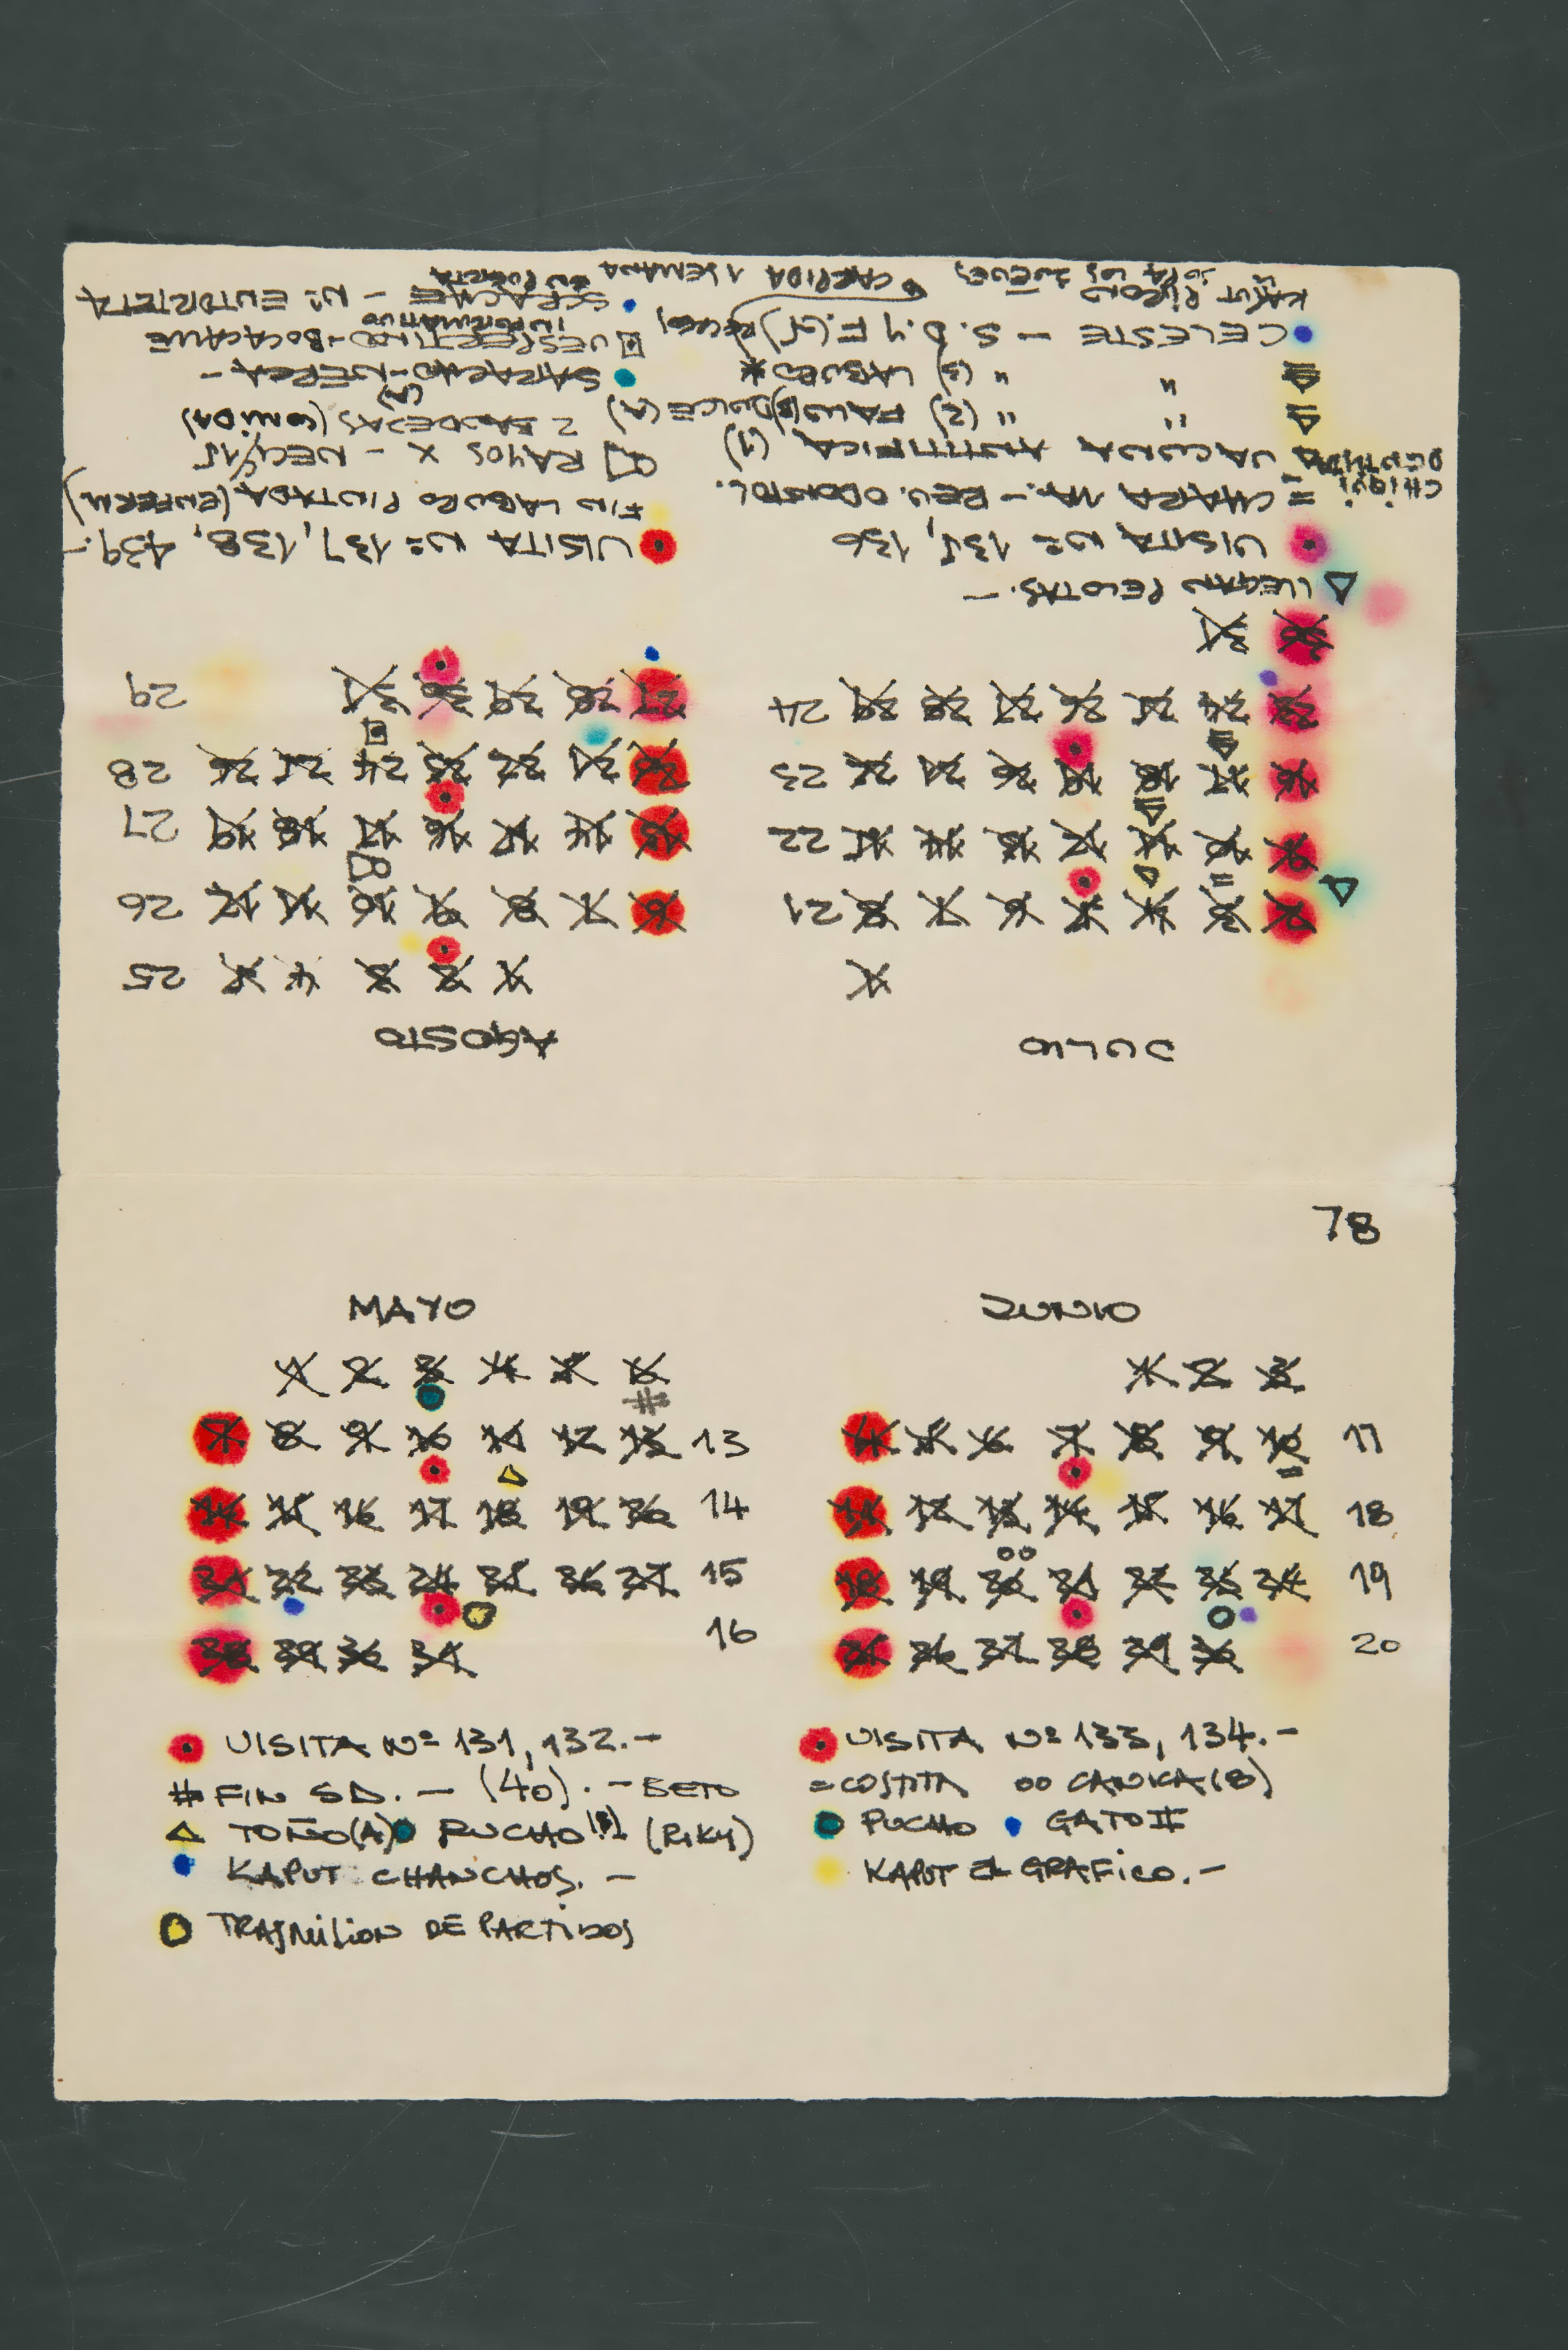 78
MAYO
1 2 3 4 5 6
#
7 8 9 10 11 12 13 13
14 15 16 17 18 19 20 14
21 22 23 24 25 26 27 15
28 29 30 31 16
VISITA Nº 131, 132.-
# FIN SD. - (40). - BETO
TOÑO(A) PUCHO (RIKY)
KAPUT CHANCHOS. -
TRASMISION DE PARTIDOS
JUNIO
1 2 3
4 5 6 7 8 9 10 17
=
11 12 13 14 15 16 17 18
oo
18 19 20 21 22 23 24 19
25 26 27 28 29 30 20
VISITA Nº 133, 134.-
= COSTITA oo CANKA(8)
PUCHO GATO II
KAPUT EL GRAFICO.-
JULIO
1
2 3 4 5 6 7 8 21
=
9 10 11 12 13 14 15 22
16 17 18 19 20 21 22 23
23 24 25 26 27 28 29 24
30 31
LLEGAN PELOTAS.-
VISITA Nº 135, 136
= CHARLA - REV. ODONTOL.
VACUNA ANTITIFICA (1)
" " (2)
" " (3) LABURO *
CELESTE - S.D.Y F.
KAPUT
CARPIDA 1 SEMANA
AGOSTO
1 2 3 4 5 25
6 7 8 9 10 11 12 26
13 14 15 16 17 18 19 27
20 21 22 23 24 25 26 28
27 28 29 30 31 29
VISITA Nº 137, 138, 439.-
FIN LABURO PINTADA (ENFERM)
RAYOS X -
2 BANDEJAS (COMIDA)
VESPERTINO - BOCACALLE
INFORMATIVO